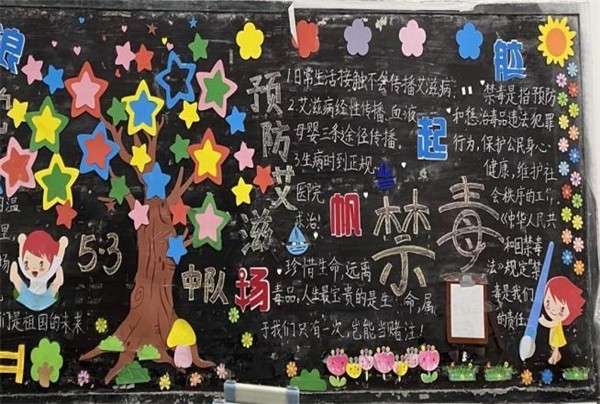 5·3
中队
们是祖国的未来
预防艾滋
1.日常生活接触不会传播艾滋病;
2.艾滋病经性传播、血液、
母婴三条途径传播。
3.生病时到正规
医院
珍惜生命,远离
毒品,人生最宝贵的是生命,属
于我们只有一次,岂能当赌注!
扬
帆
起
航
禁毒
禁毒是指预防
和惩治毒品违法犯罪
行为,保护公民身心
健康,维护社
会秩序的工作,
《中华人民共
和国禁毒
法》规定禁
毒是我们
的责任